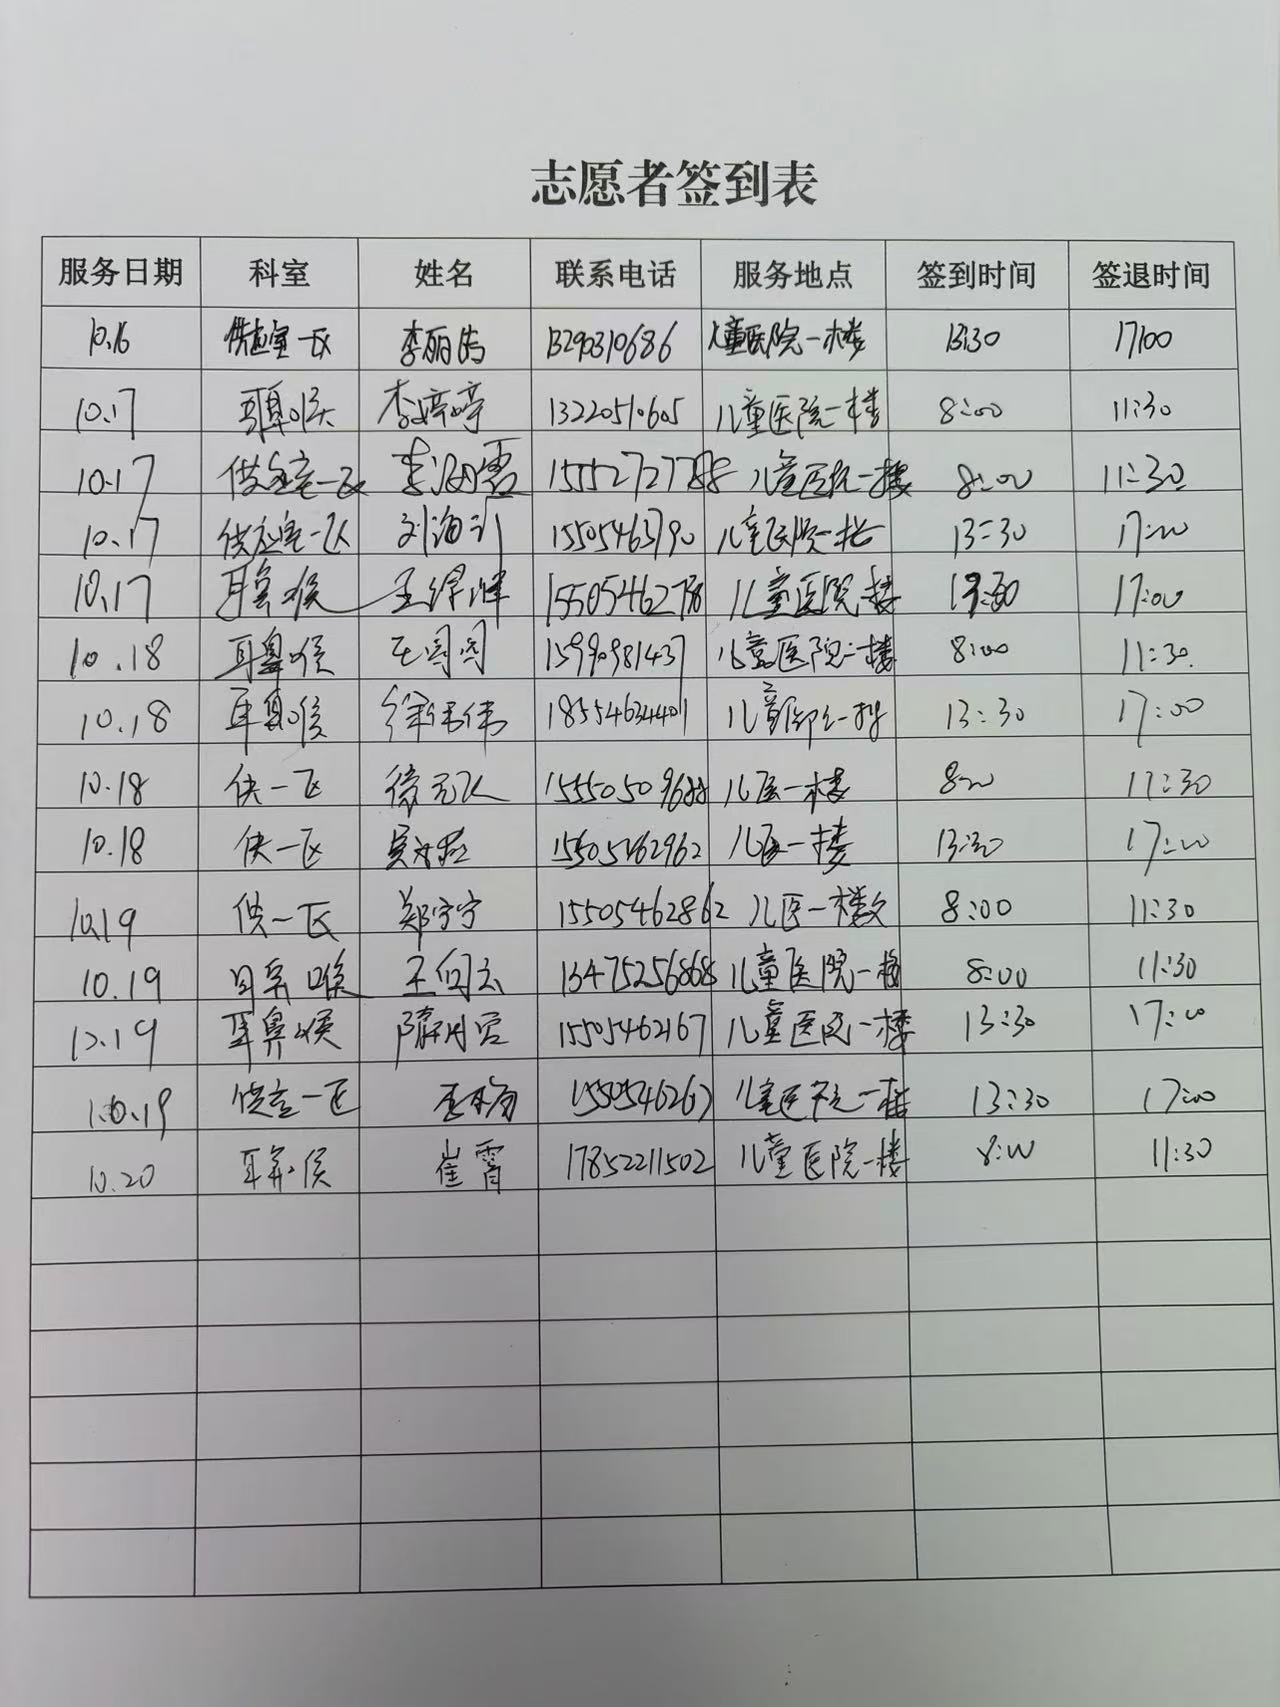 志愿者签到表
服务日期 科室 姓名 联系电话 服务地点 签到时间 签退时间
10.16 供应室一区 李丽 13290310686 儿童医院一楼 13:30 17:00
10.17 耳鼻喉 李婷婷 13220510605 儿童医院一楼 8:00 11:30
10.17 供应室一区 李海霞 儿童医院一楼 8:00 11:30
10.17 供应室一区 刘海 15505463790 儿童医院一楼 13:30 17:00
10.17 耳鼻喉 王 儿童医院一楼 13:30 17:00
10.18 耳鼻喉 王园园 儿童医院一楼 8:00 11:30
10.18 耳鼻喉 徐伟伟 18554634401 儿童 一楼 13:30 17:00
10.18 供一区 徐 儿医一楼 8:00 11:30
10.18 供一区 儿医一楼 13:30 17:00
10.19 供一区 郑宁宁 15505462862 儿医一楼 8:00 11:30
10.19 耳鼻喉 王 13475256868 儿童医院一楼 8:00 11:30
10.19 耳鼻喉 隋 15505462167 儿童医院一楼 13:30 17:00
10.19 供应一区 儿童医院一楼 13:30 17:00
10.20 耳鼻喉 崔霄 17852211502 儿童医院一楼 8:00 11:30